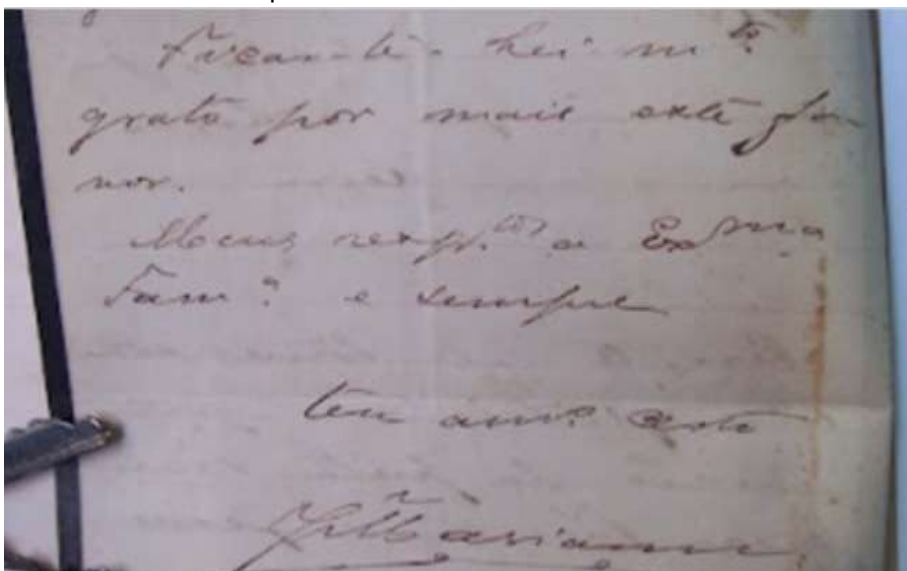 Ficar-te-hei mto
grato por mais este fa-
vor.
Meus resp.tos a Exma
Fam.a e sempre
teu amo